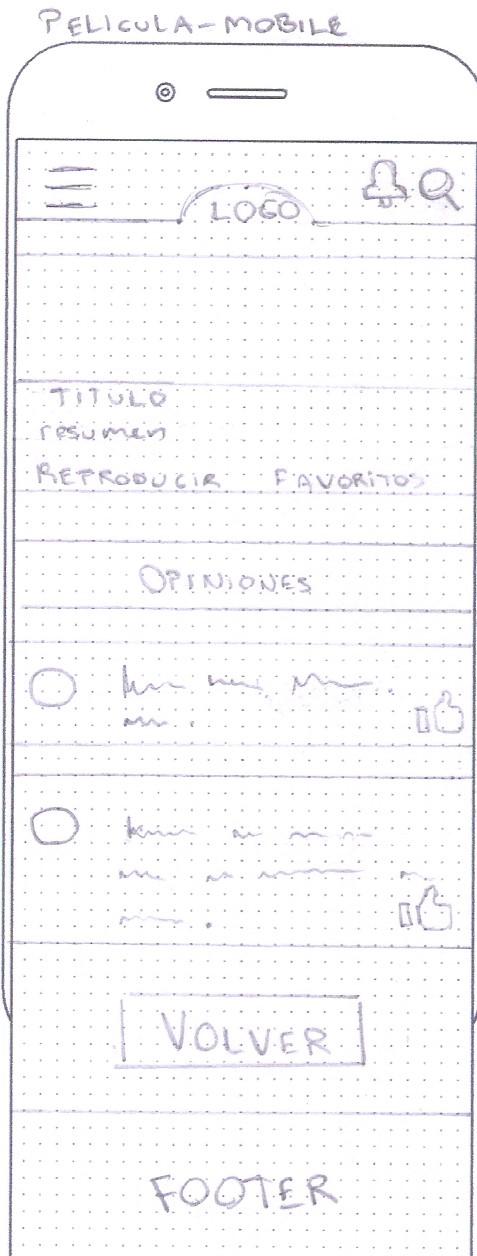 PELICULA-MOBILE
LOGO
TITULO
resumen
REPRODUCIR FAVORITOS
OPINIONES
VOLVER
FOOTER